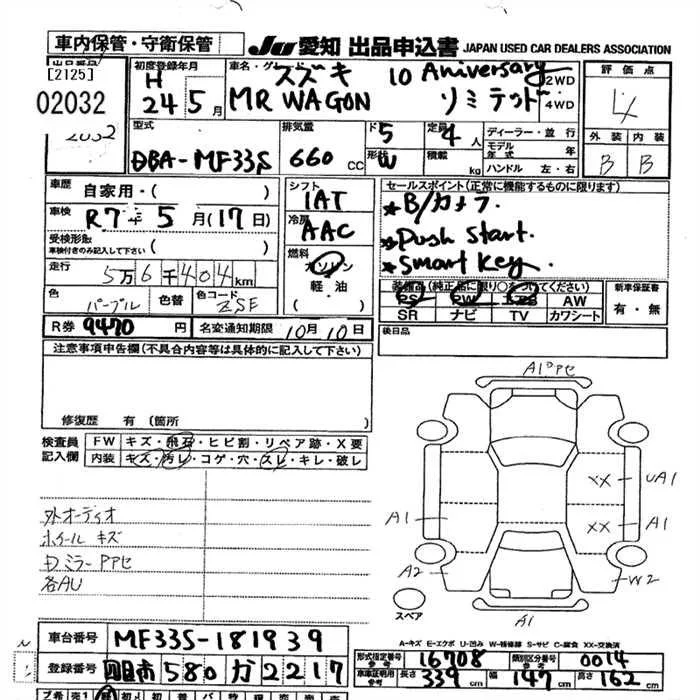 車内保管・守衛保管
JU 愛知 出品申込書 JAPAN USED CAR DEALERS ASSOCIATION
出品番号
[2125]
02032
2032
初度登録年月
H 24 5月
車名・グレード
スズキ 10 Aniversary
MR WAGON リミテッド
2WD
4WD
評価点
4
外装 内装
B B
型式
DBA-MF33S
排気量
660 CC
ド 5
形状 W
定員 4人
積載 kg
ディーラー・並行
モデル年式 年
ハンドル 左・右
車歴
自家用・( )
車検
R7年 5月(17日)
受検形態
車検付きのみ記入して下さい ( )
走行
5万6千404km
色
パープル
色替
色コード
ZSF
R券 9470円
名変通知期限 10月10日
シフト
IAT
冷房
AAC
燃料
ガソリン
軽・油
セールスポイント(正常に機能するものに限ります)
★B/カメラ.
★Push Start.
★Smart Key.
装備品(純正品に限り○をつけてください)
PS PW AW
SR ナビ TV カワシート
新車保証書
有・無
後日品
注意事項申告欄(不具合内容等は具体的に記入して下さい)
修復歴 有(箇所
検査員記入欄
FW キズ・飛石・ヒビ割・リペア跡・X要
内装 キズ・汚レ・コゲ・穴・スレ・キレ・破レ
外オーディオ
ホイール キズ
ミラーPアセ
各AU
A1 Pアセ
XX UA1
A1 XX A1
A2 W2
A1
スペア
A-キズ E-エクボ U-凹み W-補修跡 S-サビ C-腐食 XX-交換済
車台番号 MF33S-181939
登録番号 四日市 580 カ 2217
形式指定番号 参考 16708
類別区分番号 参考 0014
車庫証明用 参考 長さ 339cm 幅 147cm 高さ 162cm